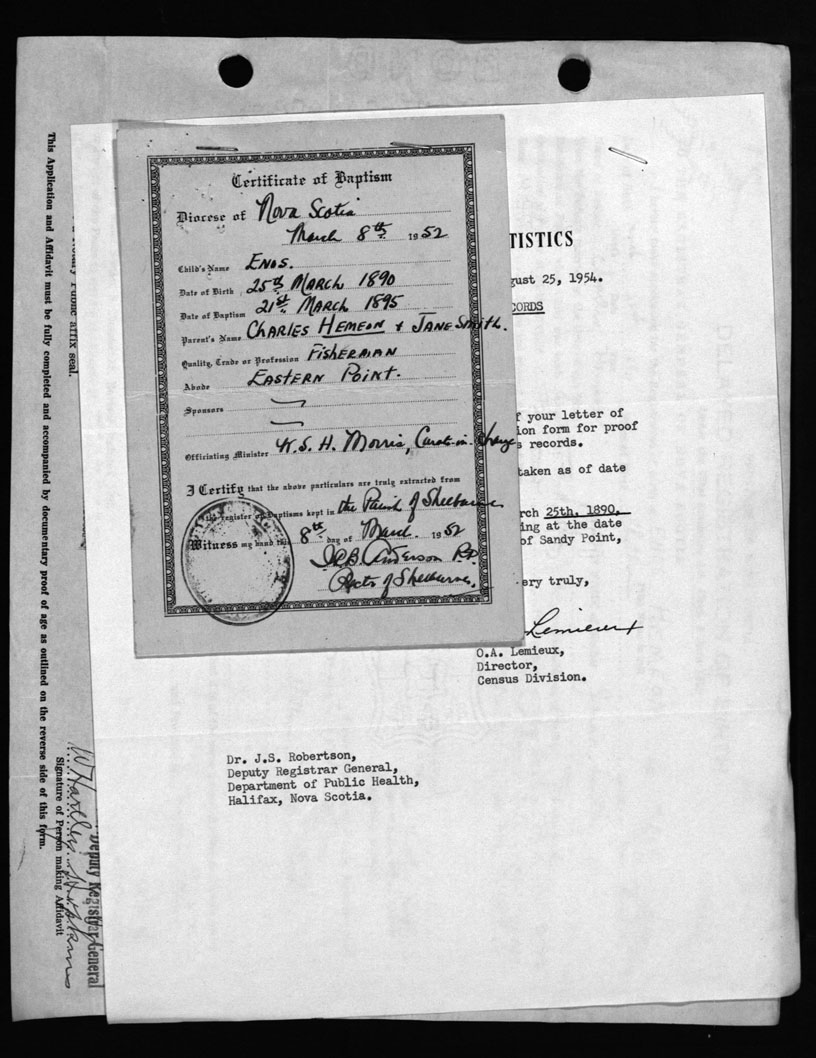 Certificate of Baptism
Diocese of Nova Scotia
March 8th 1952
Child's Name Enos.
Date of Birth 25th March 1890
Date of Baptism 21st March 1895
Parent's Name Charles Hemeon & Jane Smith.
Quality, Trade or Profession Fisherman
Abode Eastern Point.
Sponsors
Officiating Minister W.S.H. Morris, Curate-in-Charge
I Certify that the above particulars are truly extracted from
the register of Baptisms kept in the Parish of Shelburne
Witness my hand this 8th day of March 1952
Anderson
Rector of Shelburne.
TISTICS
gust 25, 1954.
CORDS
f your letter of
ion form for proof
s records.
taken as of date
rch 25th, 1890,
ing at the date
of Sandy Point,
ery truly,
Lemieux
O.A. Lemieux,
Director,
Census Division.
Dr. J.S. Robertson,
Deputy Registrar General,
Department of Public Health,
Halifax, Nova Scotia.
affix seal.
This Application and Affidavit must be fully completed and accompanied by documentary proof of age as outlined on the reverse side of this form.
Signature of Person making Affidavit
Deputy Registrar General